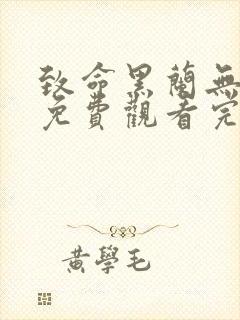 致命黑蘭無
免費觀看完
黃學毛